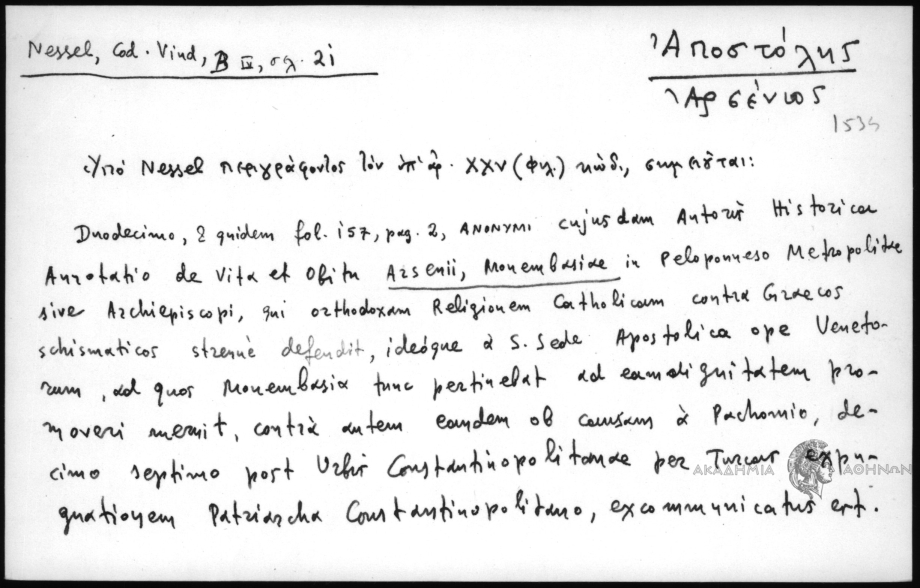 Nessel, Cod. Vind, B IV, σχ. 21
Ἀποστόλης
Ἀρσένιος
1535
Ὑπό Nessel περιγράφοντος τόν ὑπ' ἀρ. XXV (φιλ.) κώδ., σημειοῦται:
Duodecimo, & quidem fol. 157, pag. 2, ANONYMI cujusdam Autoris Historica
Annotatio de Vita et Obitu Arsenii, Monembasiae in Peloponneso Metropolitae
sive Archiepiscopi, qui orthodoxam Religionem Catholicam contra Graecos
schismaticos strenuè defendit, ideóque à S. Sede Apostolica ope Veneto-
rum, ad quos Monembasia tunc pertinebat ad eam dignitatem pro-
moveri meruit, contrà autem eandem ob causam à Pachomio, de-
cimo septimo post Urbis Constantinopolitanae per Turcas expu-
gnationem Patriarcha Constantinopolitano, excommunicatus est.
ΑΚΑΔΗΜΙΑ ΑΘΗΝΩΝ